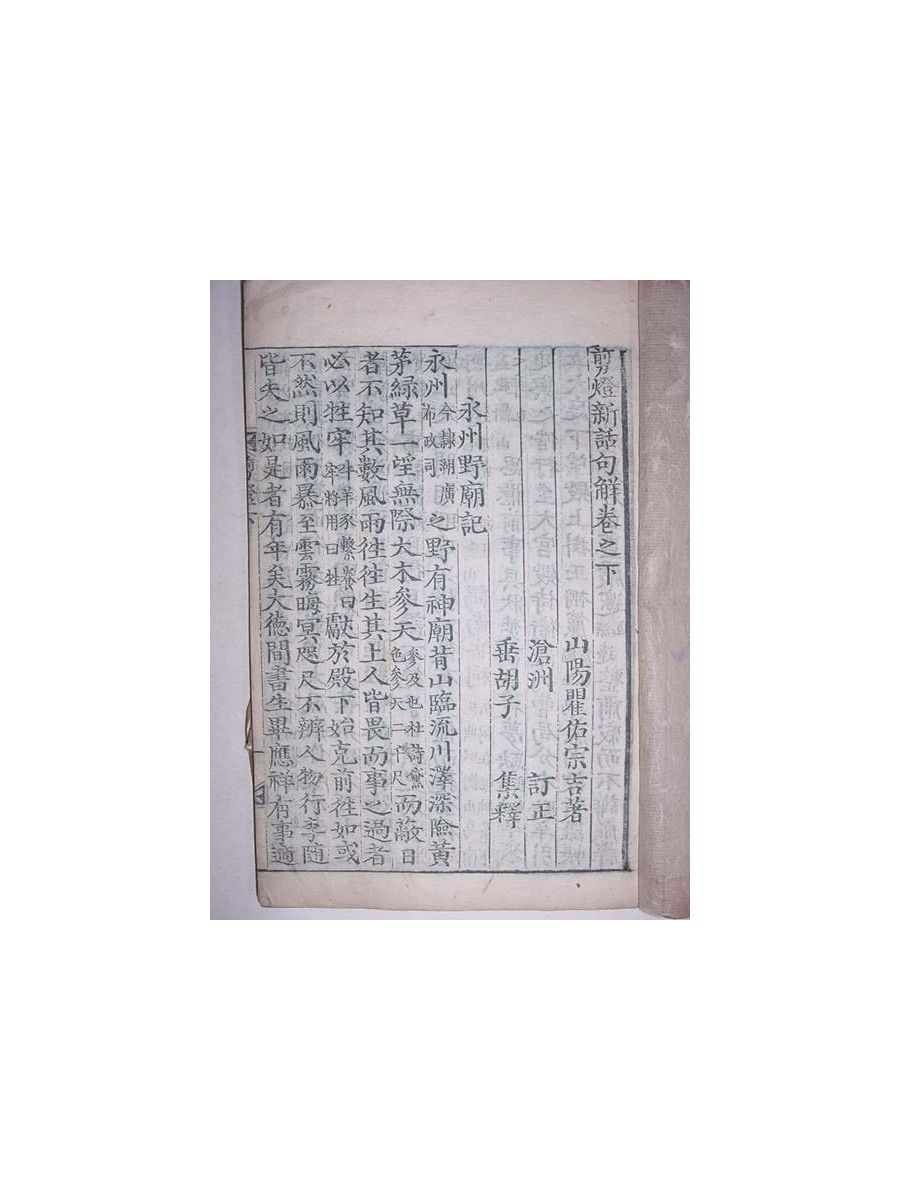 剪燈新話句解卷之下
山陽瞿佑宗吉著
滄洲 訂正
垂胡子 集釋
永州野廟記
永州今隸湖廣布政司之野有神廟背山臨流川澤深險黃
茅綠草一望無際大木參天參及也杜詩黛色參天二千尺而蔽日
者不知其數風雨往往生其上人皆畏而事之過者
必以牲牢牛羊豕繫養曰牢將用曰牲獻於殿下始克前往如或
不然則風雨暴至雲霧晦冥咫尺不辨人物行李隨
皆失之如是者有年矣大德間書生畢應祥有事適